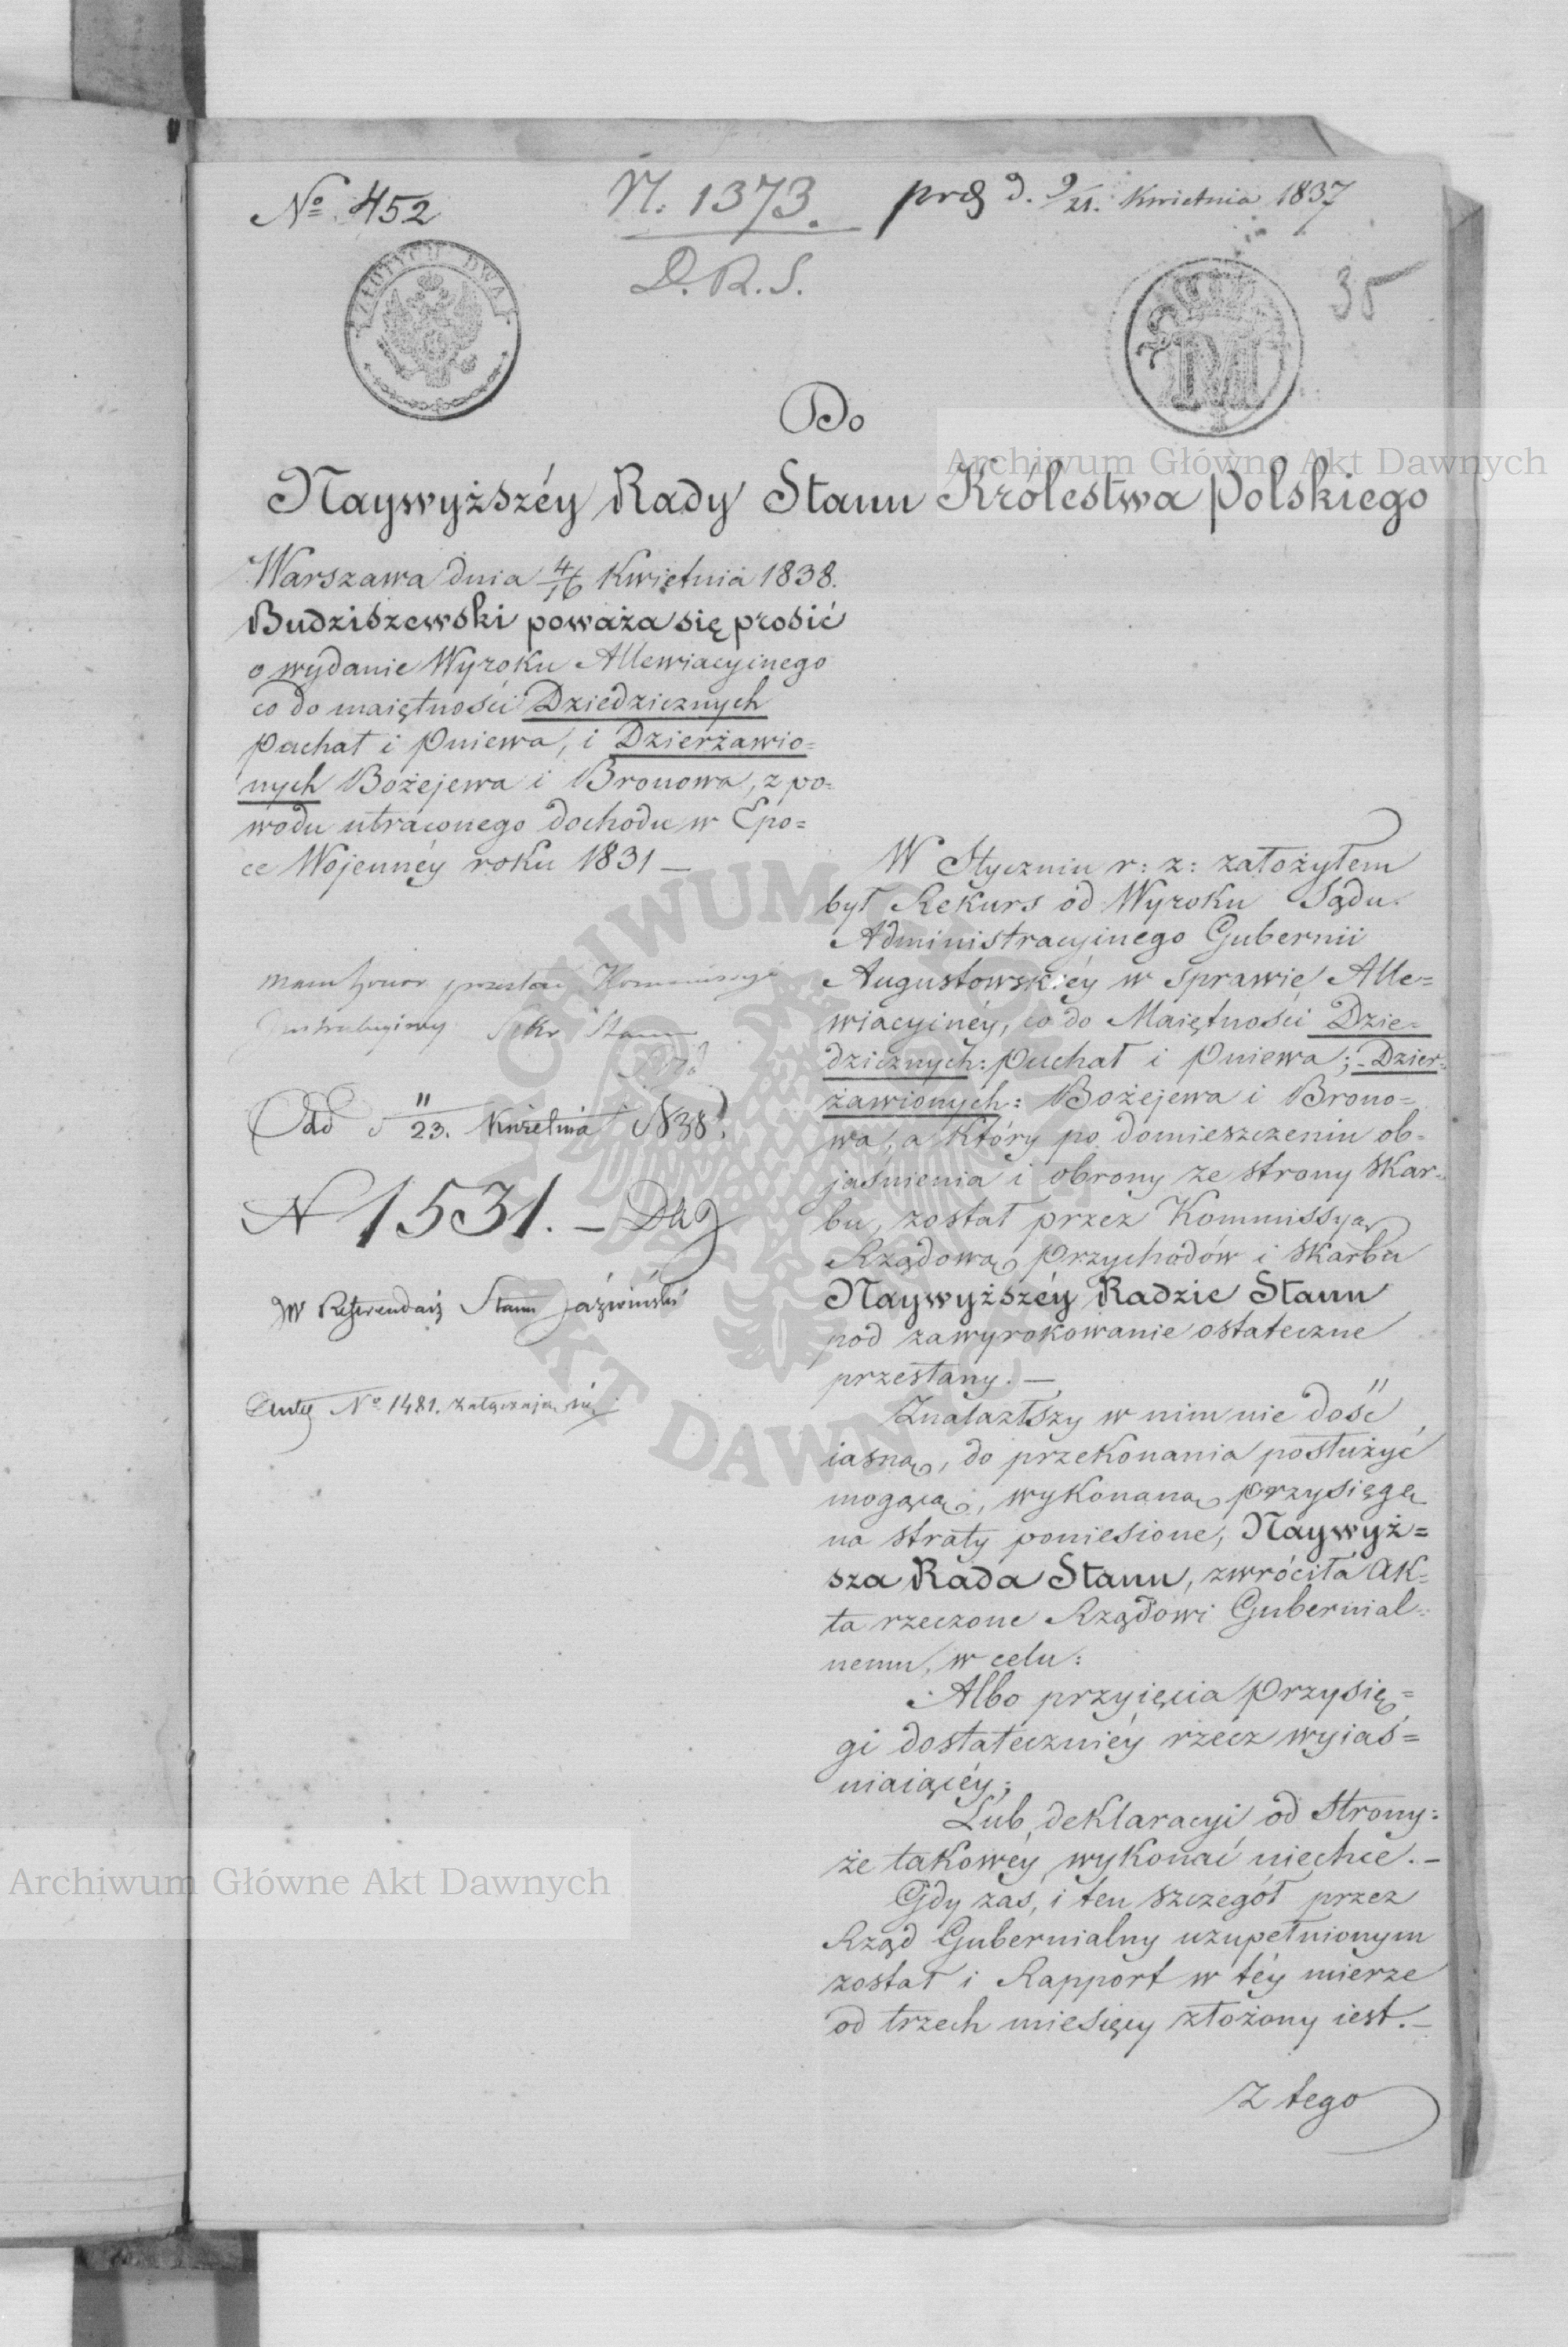 No 452
N. 1373.
D. R. S.
d. 9/21. Kwietnia 1837
35
ZŁOTYCH DWA
M
Do
Naywyższéy Rady Stanu Królestwa Polskiego
Warszawa dnia 4/16 Kwietnia 1838.
Budziszewski poważa się prosić
o wydanie Wyroku Allewiacyinego
co do maiętności Dziedzicznych
Puchał i Pniewa, i Dzierżawio=
nych Bożejewa i Bronowa, z po=
wodu utraconego dochodu w Epo=
ce Wojennéy roku 1831 —
mam honor przesłać Kommissyi
Sekr Stanu
11/23. Kwietnia 1838.
N 1531. —
JW Referendarz Stanu Jaźwiński
No 1481. załączaią się
W Styczniu r: z: założyłem
był Rekurs od Wyroku Sądu
Administracyinego Gubernii
Augustowskiéy w sprawie Alle=
wiacyinéy, co do Maiętności Dzie=
dzicznych: Puchał i Pniewa; - Dzier=
żawionych: Bożejewa i Brono=
wa, a który po domieszczeniu ob=
jaśnienia i obrony ze strony Skar=
bu, został przez Kommissyą
Rządową Przychodów i Skarbu
Naywyższéy Radzie Stanu
pod zawyrokowanie ostateczne
przesłany. —
Znalazłszy w nim nie dość
iasną, do przekonania posłużyć
mogącą, wykonaną przysięgę
na straty poniesione, Naywyż=
sza Rada Stanu, zwróciła Ak=
ta rzeczone Rządowi Gubernial=
nemu, w celu:
Albo przyięcia Przysię=
gi dostateczniéy rzecz wyiaś=
niaiącéy;
Lub, deklaracyi od Strony:
że takowéy wykonać niechce. —
Gdy zaś, i ten szczegół przez
Rząd Gubernialny uzupełnionym
został i Rapport w téy mierze
od trzech miesięcy złożony iest. —
Z tego
Archiwum Główne Akt Dawnych
Archiwum Główne Akt Dawnych